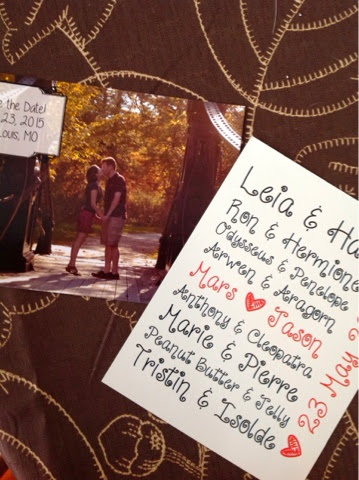 e the Date!
23, 2015
Louis, MO
Leia & Ha
Ron & Hermione
Odysseus & Penelope
Arwen & Aragorn
Mars ♥ Jason
Anthony & Cleopatra
Marie & Pierre
Peanut Butter & Jelly
Tristin & Isolde
23 May